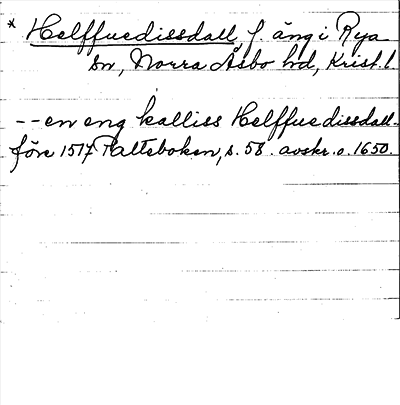 * Helffuedissdall, f. äng i Rya
sn, Norra Åsbo hd, Krist.l.
-- en eng kalliss Helffuedissdall-
före 1517 Palteboken, s. 58. avskr. o. 1650.